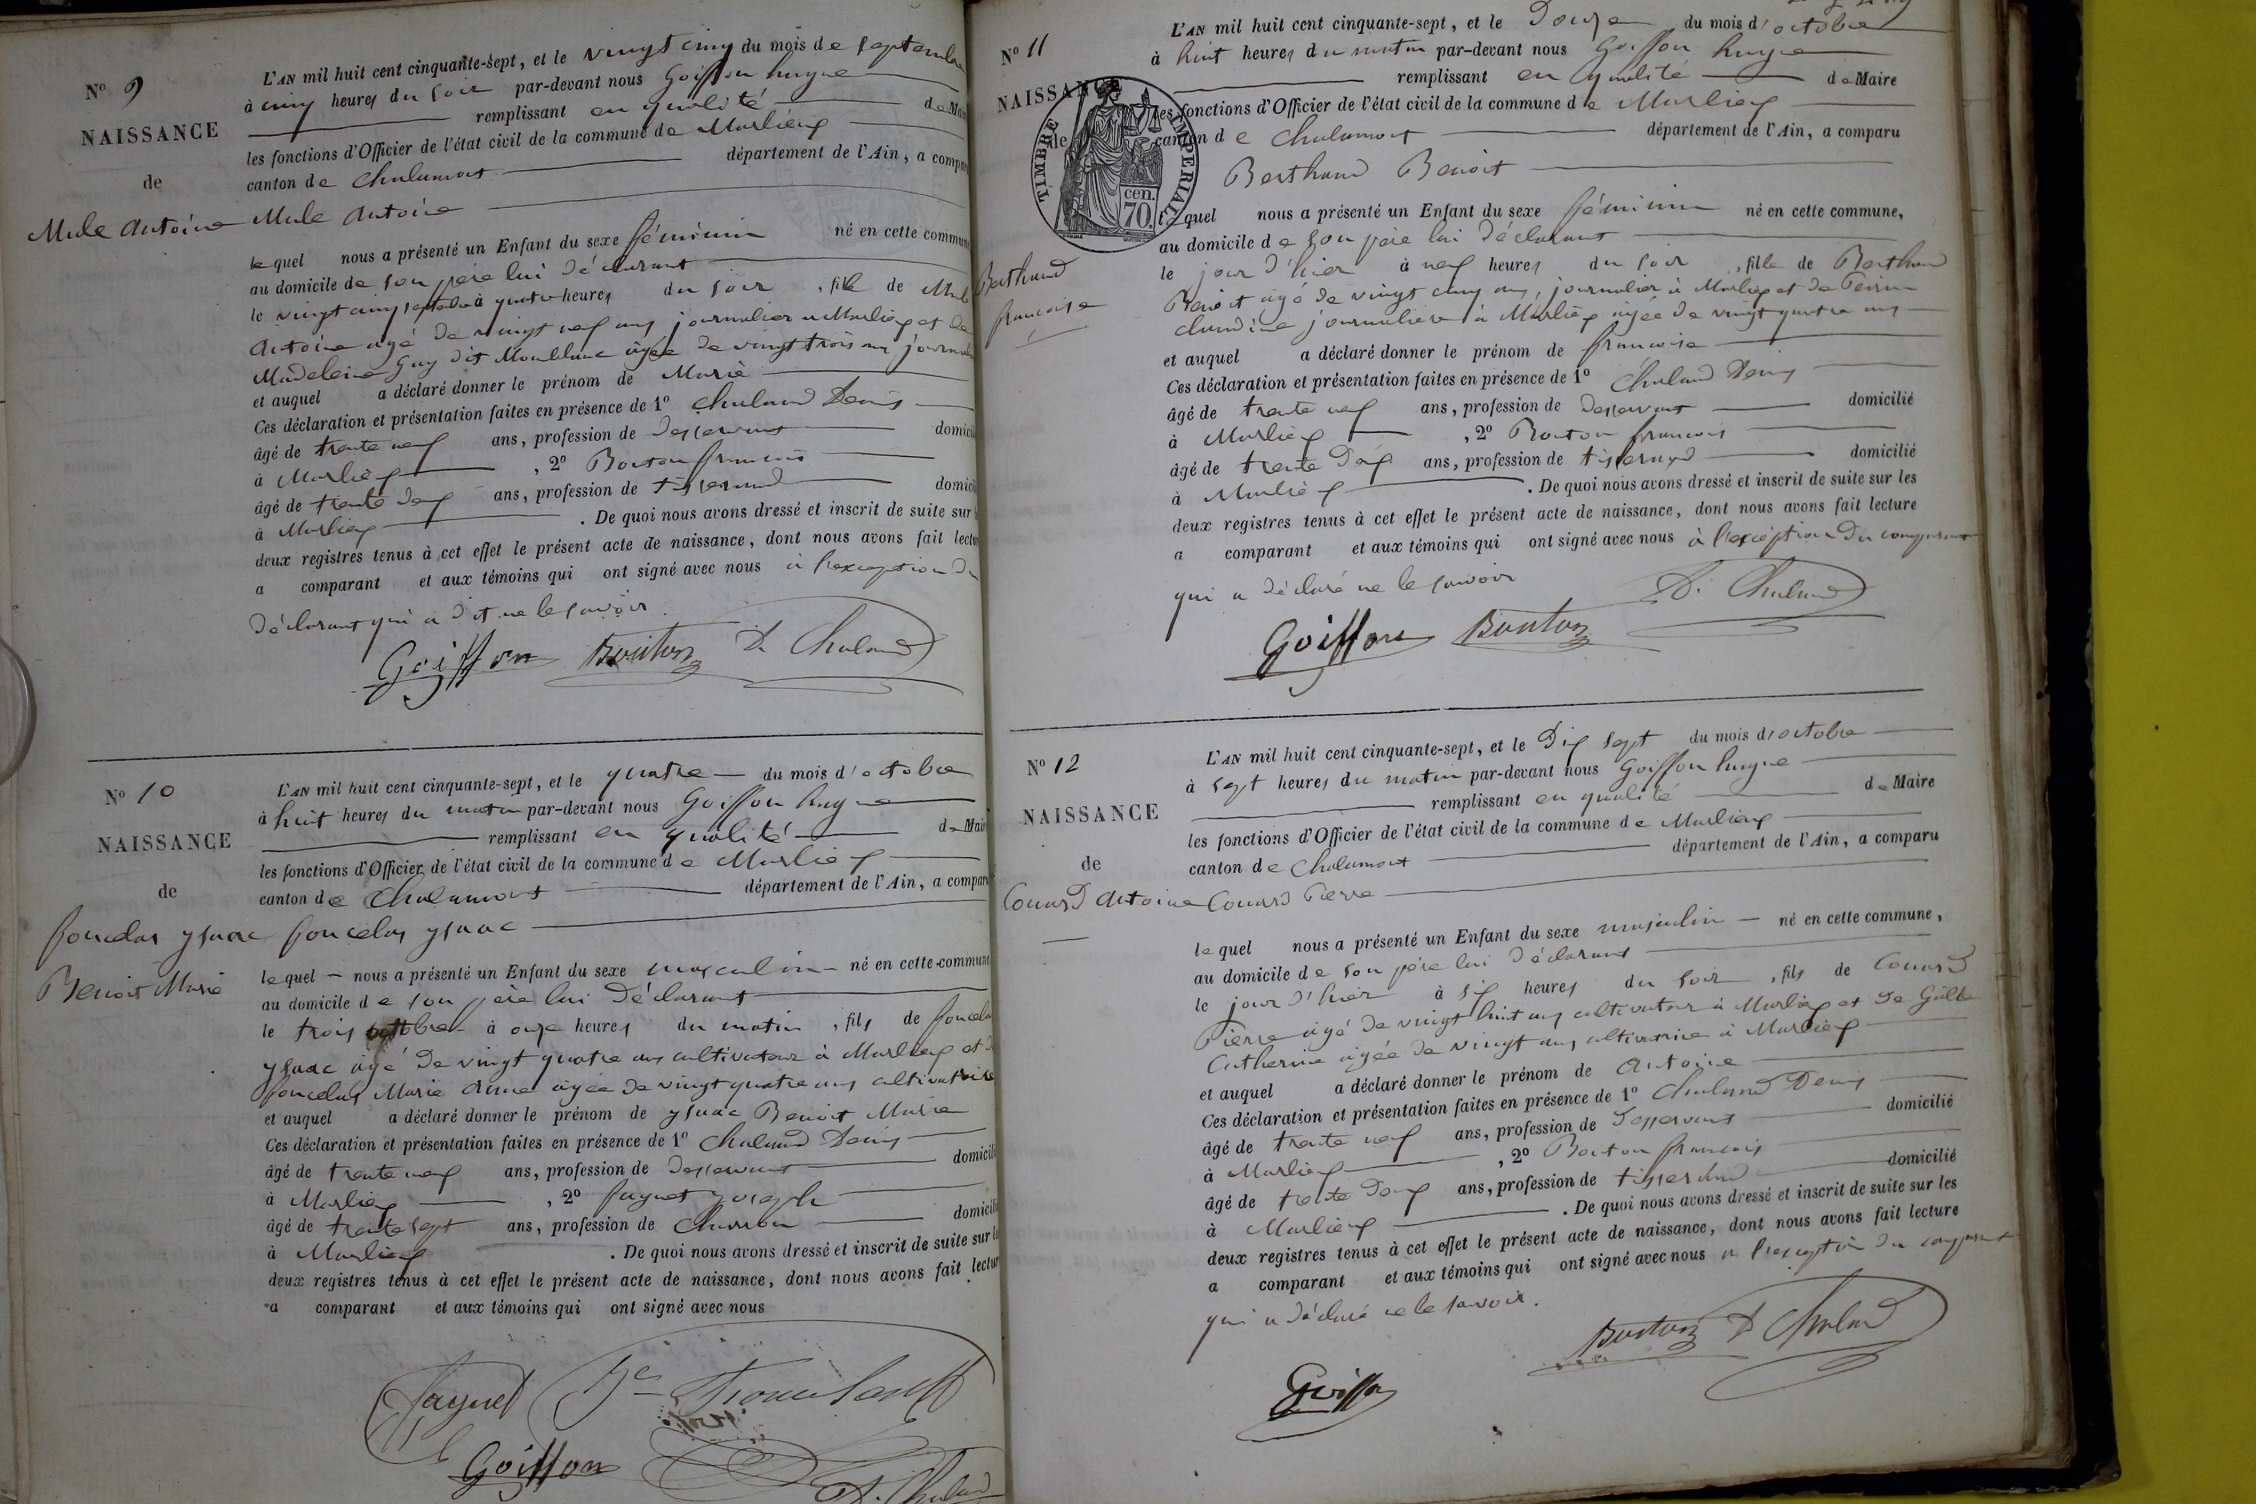 N° 9
NAISSANCE
de
Mule Antoine
L'AN mil huit cent cinquante-sept, et le vingt cinq du mois de septembre
à cinq heures du soir par-devant nous Goiffon hugue
remplissant en qualité de Maire
les fonctions d'Officier de l'état civil de la commune de Marlieux
canton de Chalamont département de l'Ain, a comparu
Mule Antoine
lequel nous a présenté un Enfant du sexe féminin né en cette commune
au domicile de son père lui déclarant
le vingt cinq septembre à quatre heures du soir, fille de Mule
Antoine agé de vingt neuf ans journalier a Marlieux et de
Madeleine Guy dit Moulhane âgée de vingt trois ans
et auquel a déclaré donner le prénom de Marie
Ces déclaration et présentation faites en présence de 1° Chaland Denis
âgé de trente neuf ans, profession de desservant
à Marlieux, 2° Bouton francois
âgé de trente deux ans, profession de tisserand
à Marlieux. De quoi nous avons dressé et inscrit de suite sur
deux registres tenus à cet effet le présent acte de naissance, dont nous avons fait lecture
a comparant et aux témoins qui ont signé avec nous à l'exception du
déclarant qui a dit ne le savoir.
Goiffon Bouton D. Chaland
N° 10
NAISSANCE
de
foucelas ysaac
Benoit Marie
L'AN mil huit cent cinquante-sept, et le quatre du mois d'octobre
à huit heures du matin par-devant nous Goiffon hugue
remplissant en qualité de Maire
les fonctions d'Officier de l'état civil de la commune de Marlieux
canton de Chalamont département de l'Ain, a comparu
foucelas ysaac
lequel nous a présenté un Enfant du sexe masculin né en cette commune
au domicile de son père lui déclarant
le trois octobre à onze heures du matin, fils de foucelas
ysaac âgé de vingt quatre ans cultivateur à Marlieux et de
foucelas Marie Anne âgée de vingt quatre ans cultivatrice
et auquel a déclaré donner le prénom de ysaac Benoit Marie
Ces déclaration et présentation faites en présence de 1° Chaland Denis
âgé de trente neuf ans, profession de desservant
à Marlieux, 2° Jaquet yoseph
âgé de trente sept ans, profession de Charron
à Marlieux. De quoi nous avons dressé et inscrit de suite sur
deux registres tenus à cet effet le présent acte de naissance, dont nous avons fait lecture
a comparant et aux témoins qui ont signé avec nous
Jaquet
Goiffon D. Chaland
N° 11
NAISSANCE
de
Berthaud
francoise
TIMBRE IMPERIAL
70 cen.
L'AN mil huit cent cinquante-sept, et le Douze du mois d'octobre
à huit heures du matin par-devant nous Goiffon hugue
remplissant en qualité de Maire
les fonctions d'Officier de l'état civil de la commune de Marlieux
canton de Chalamont département de l'Ain, a comparu
Berthaud Benoit
lequel nous a présenté un Enfant du sexe féminin né en cette commune,
au domicile de son père lui déclarant
le jour d'hier à neuf heures du soir, fille de Berthaud
Benoit âgé de vingt cinq ans, journalier à Marlieux et de Perrin
claudine journalière à Marlieux âgée de vingt quatre ans
et auquel a déclaré donner le prénom de francoise
Ces déclaration et présentation faites en présence de 1° Chaland Denis
âgé de trente neuf ans, profession de desservant domicilié
à Marlieux, 2° Bouton francois
âgé de trente deux ans, profession de tisserand domicilié
à Marlieux. De quoi nous avons dressé et inscrit de suite sur les
deux registres tenus à cet effet le présent acte de naissance, dont nous avons fait lecture
a comparant et aux témoins qui ont signé avec nous à l'exception du comparant
qui a déclaré ne le savoir
Goiffon Bouton D. Chaland
N° 12
NAISSANCE
de
Couard Antoine
L'AN mil huit cent cinquante-sept, et le Dix sept du mois d'octobre
à sept heures du matin par-devant nous Goiffon hugue
remplissant en qualité de Maire
les fonctions d'Officier de l'état civil de la commune de Marlieux
canton de Chalamont département de l'Ain, a comparu
Couard Pierre
lequel nous a présenté un Enfant du sexe masculin né en cette commune,
au domicile de son père lui déclarant
le jour d'hier à six heures du soir, fils de Couard
Pierre âgé de vingt huit ans cultivateur à Marlieux et de
Catherine âgée de vingt ans cultivatrice à Marlieux
et auquel a déclaré donner le prénom de Antoine
Ces déclaration et présentation faites en présence de 1° Chaland Denis
âgé de trente neuf ans, profession de desservant domicilié
à Marlieux, 2° Bouton francois
âgé de trente deux ans, profession de tisserand domicilié
à Marlieux. De quoi nous avons dressé et inscrit de suite sur les
deux registres tenus à cet effet le présent acte de naissance, dont nous avons fait lecture
a comparant et aux témoins qui ont signé avec nous à l'exception du comparant
qui a déclaré ne le savoir.
Bouton D Chaland
Goiffon